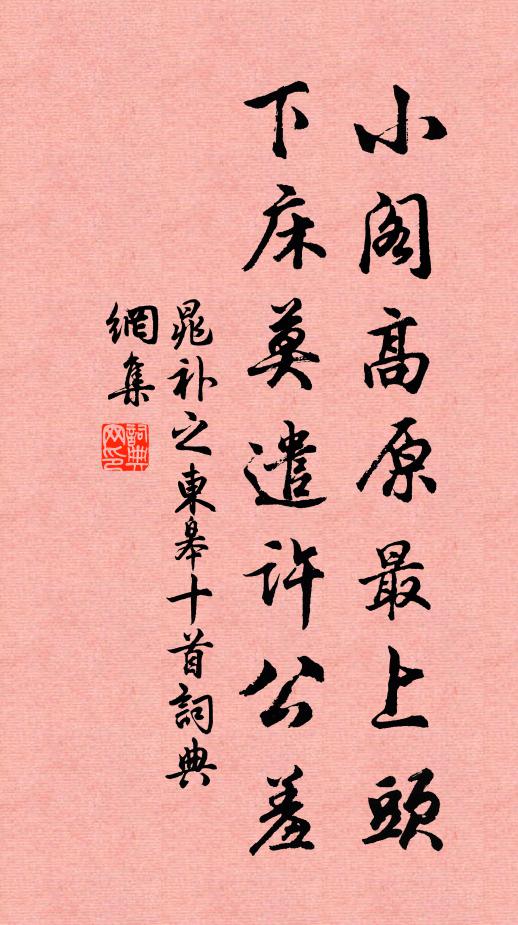 小阁高原最上頭
下床莫遣許公羞
晁补之東皋十首詞典
網集
詞典
网印